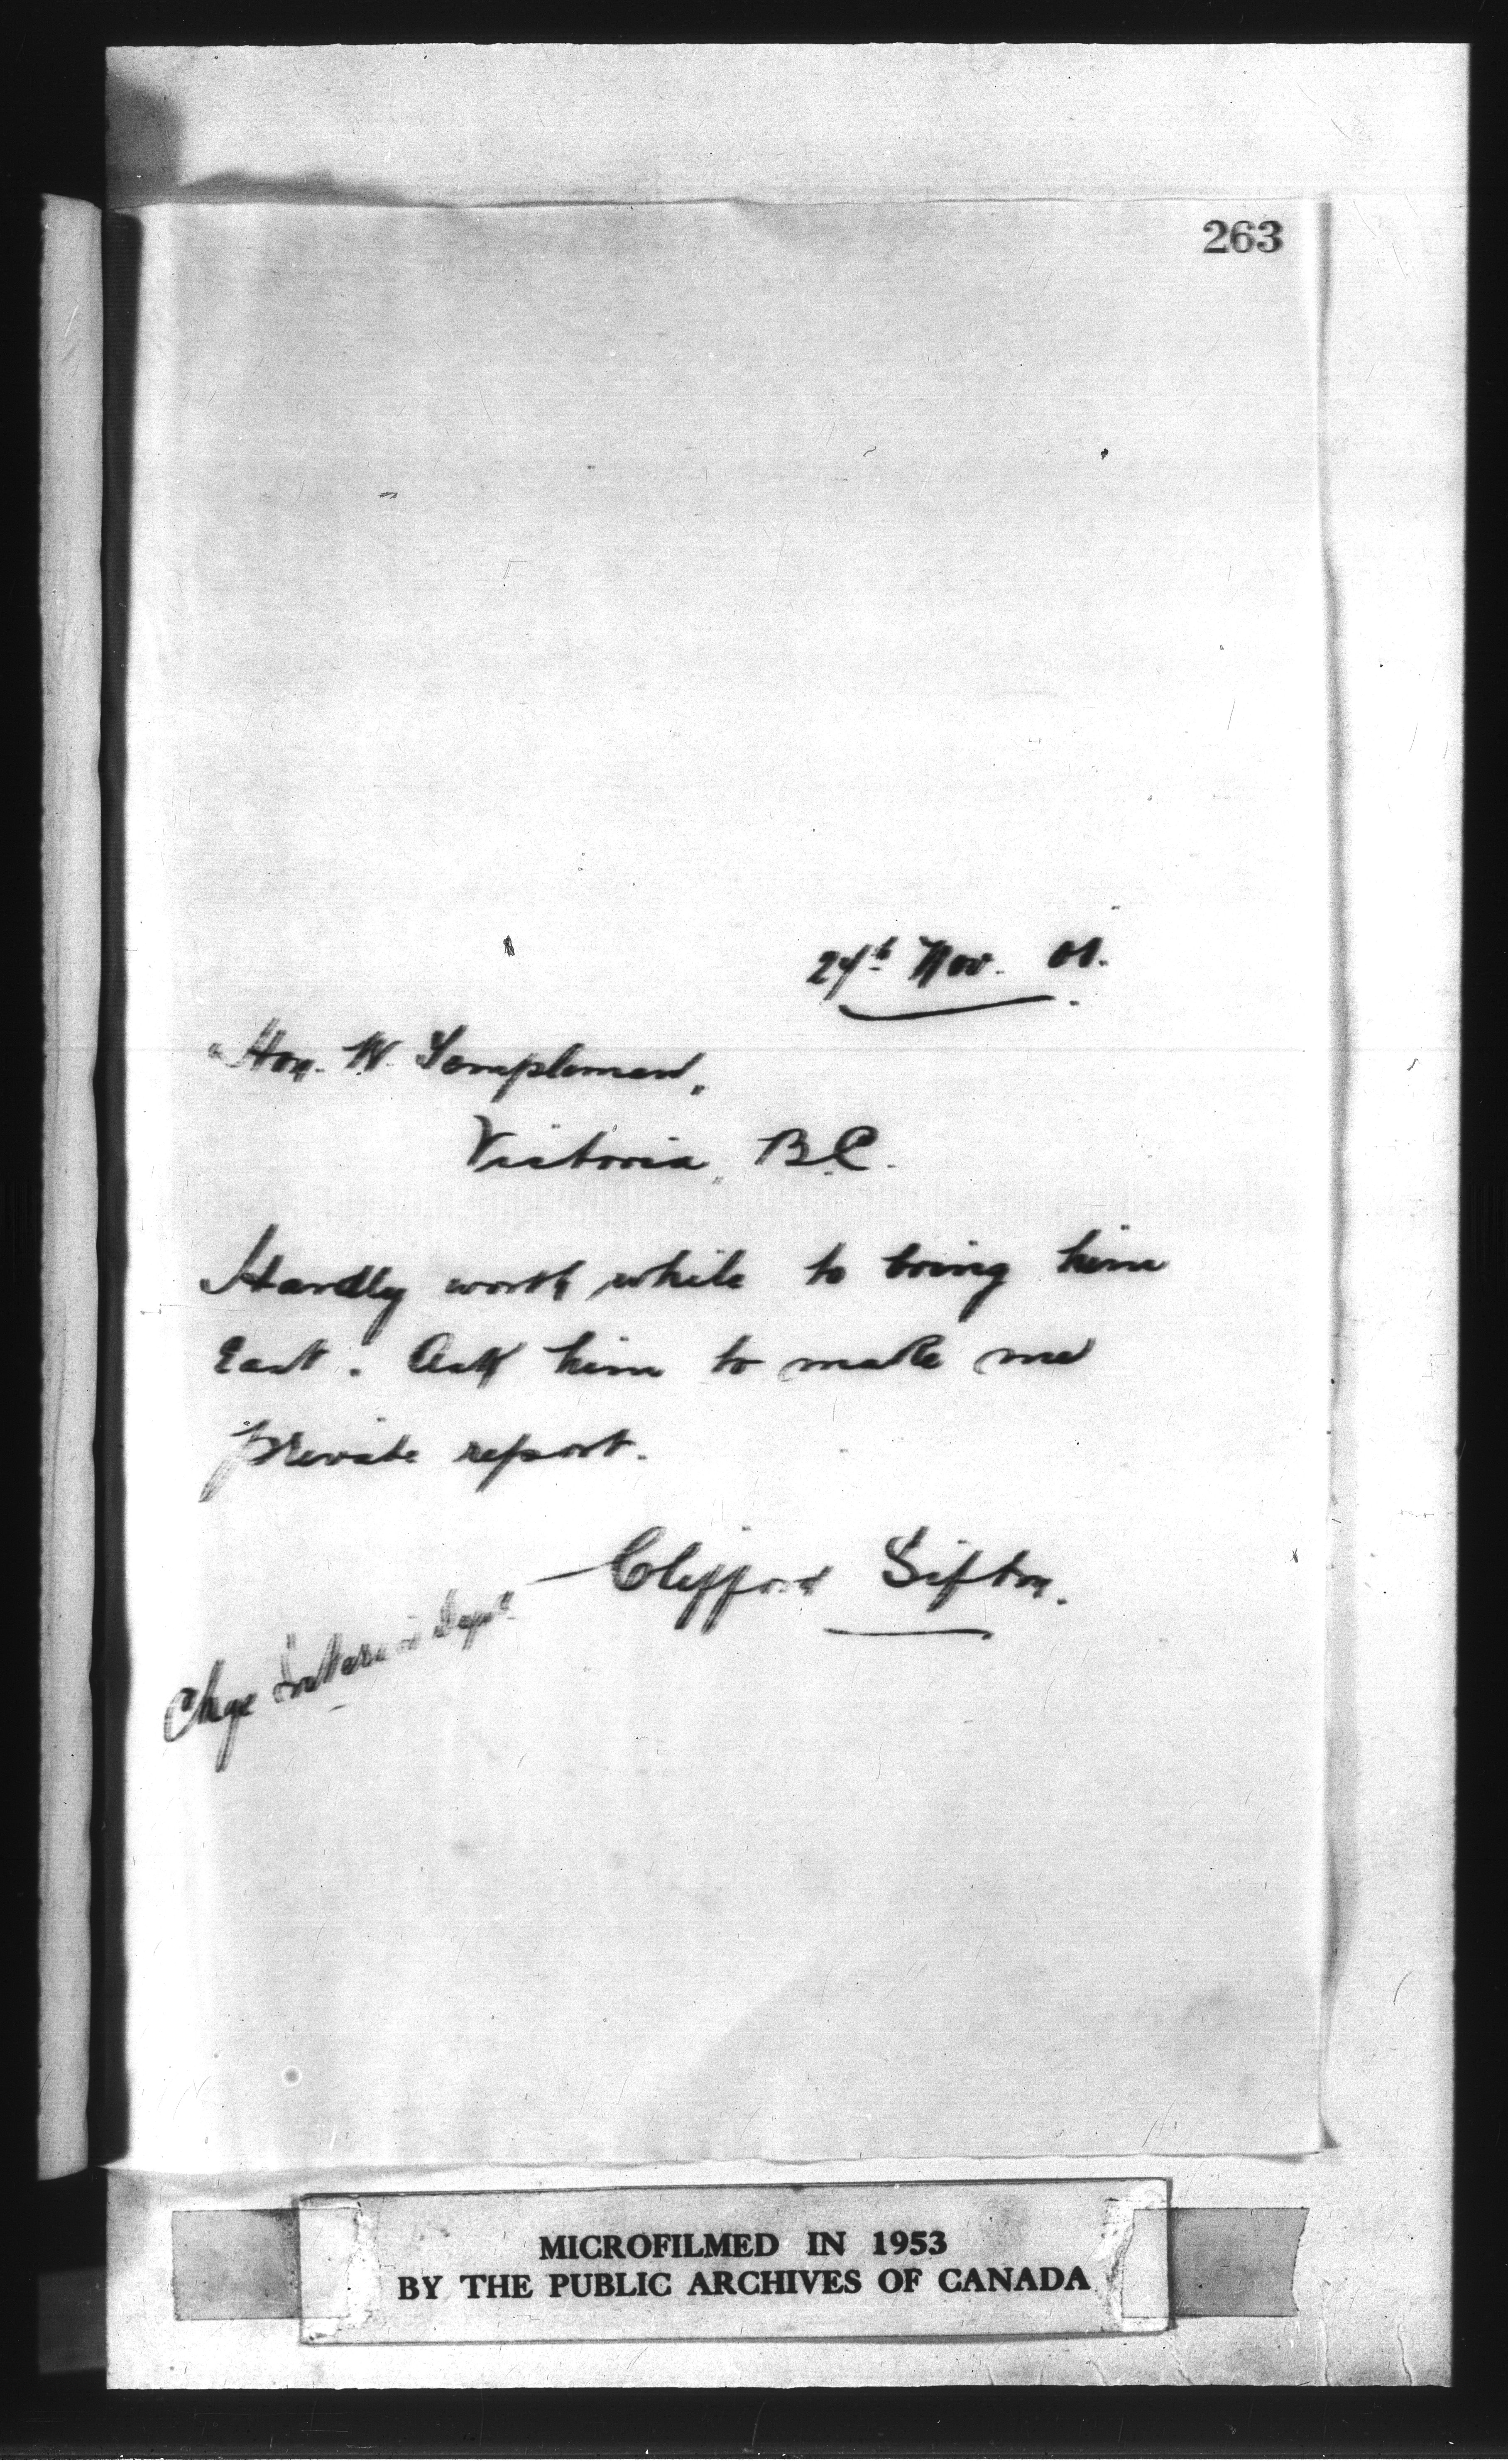 263
27th Nov. 01.
Hon. W. Templeman,
Victoria, B.C.
Hardly worth while to bring him
East. Ask him to make me
private report.
Clifford Sifton.
Chge Interior Dept
MICROFILMED IN 1953
BY THE PUBLIC ARCHIVES OF CANADA